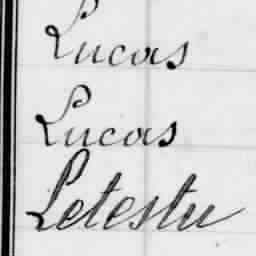 Lucas
Lucas
Letestu